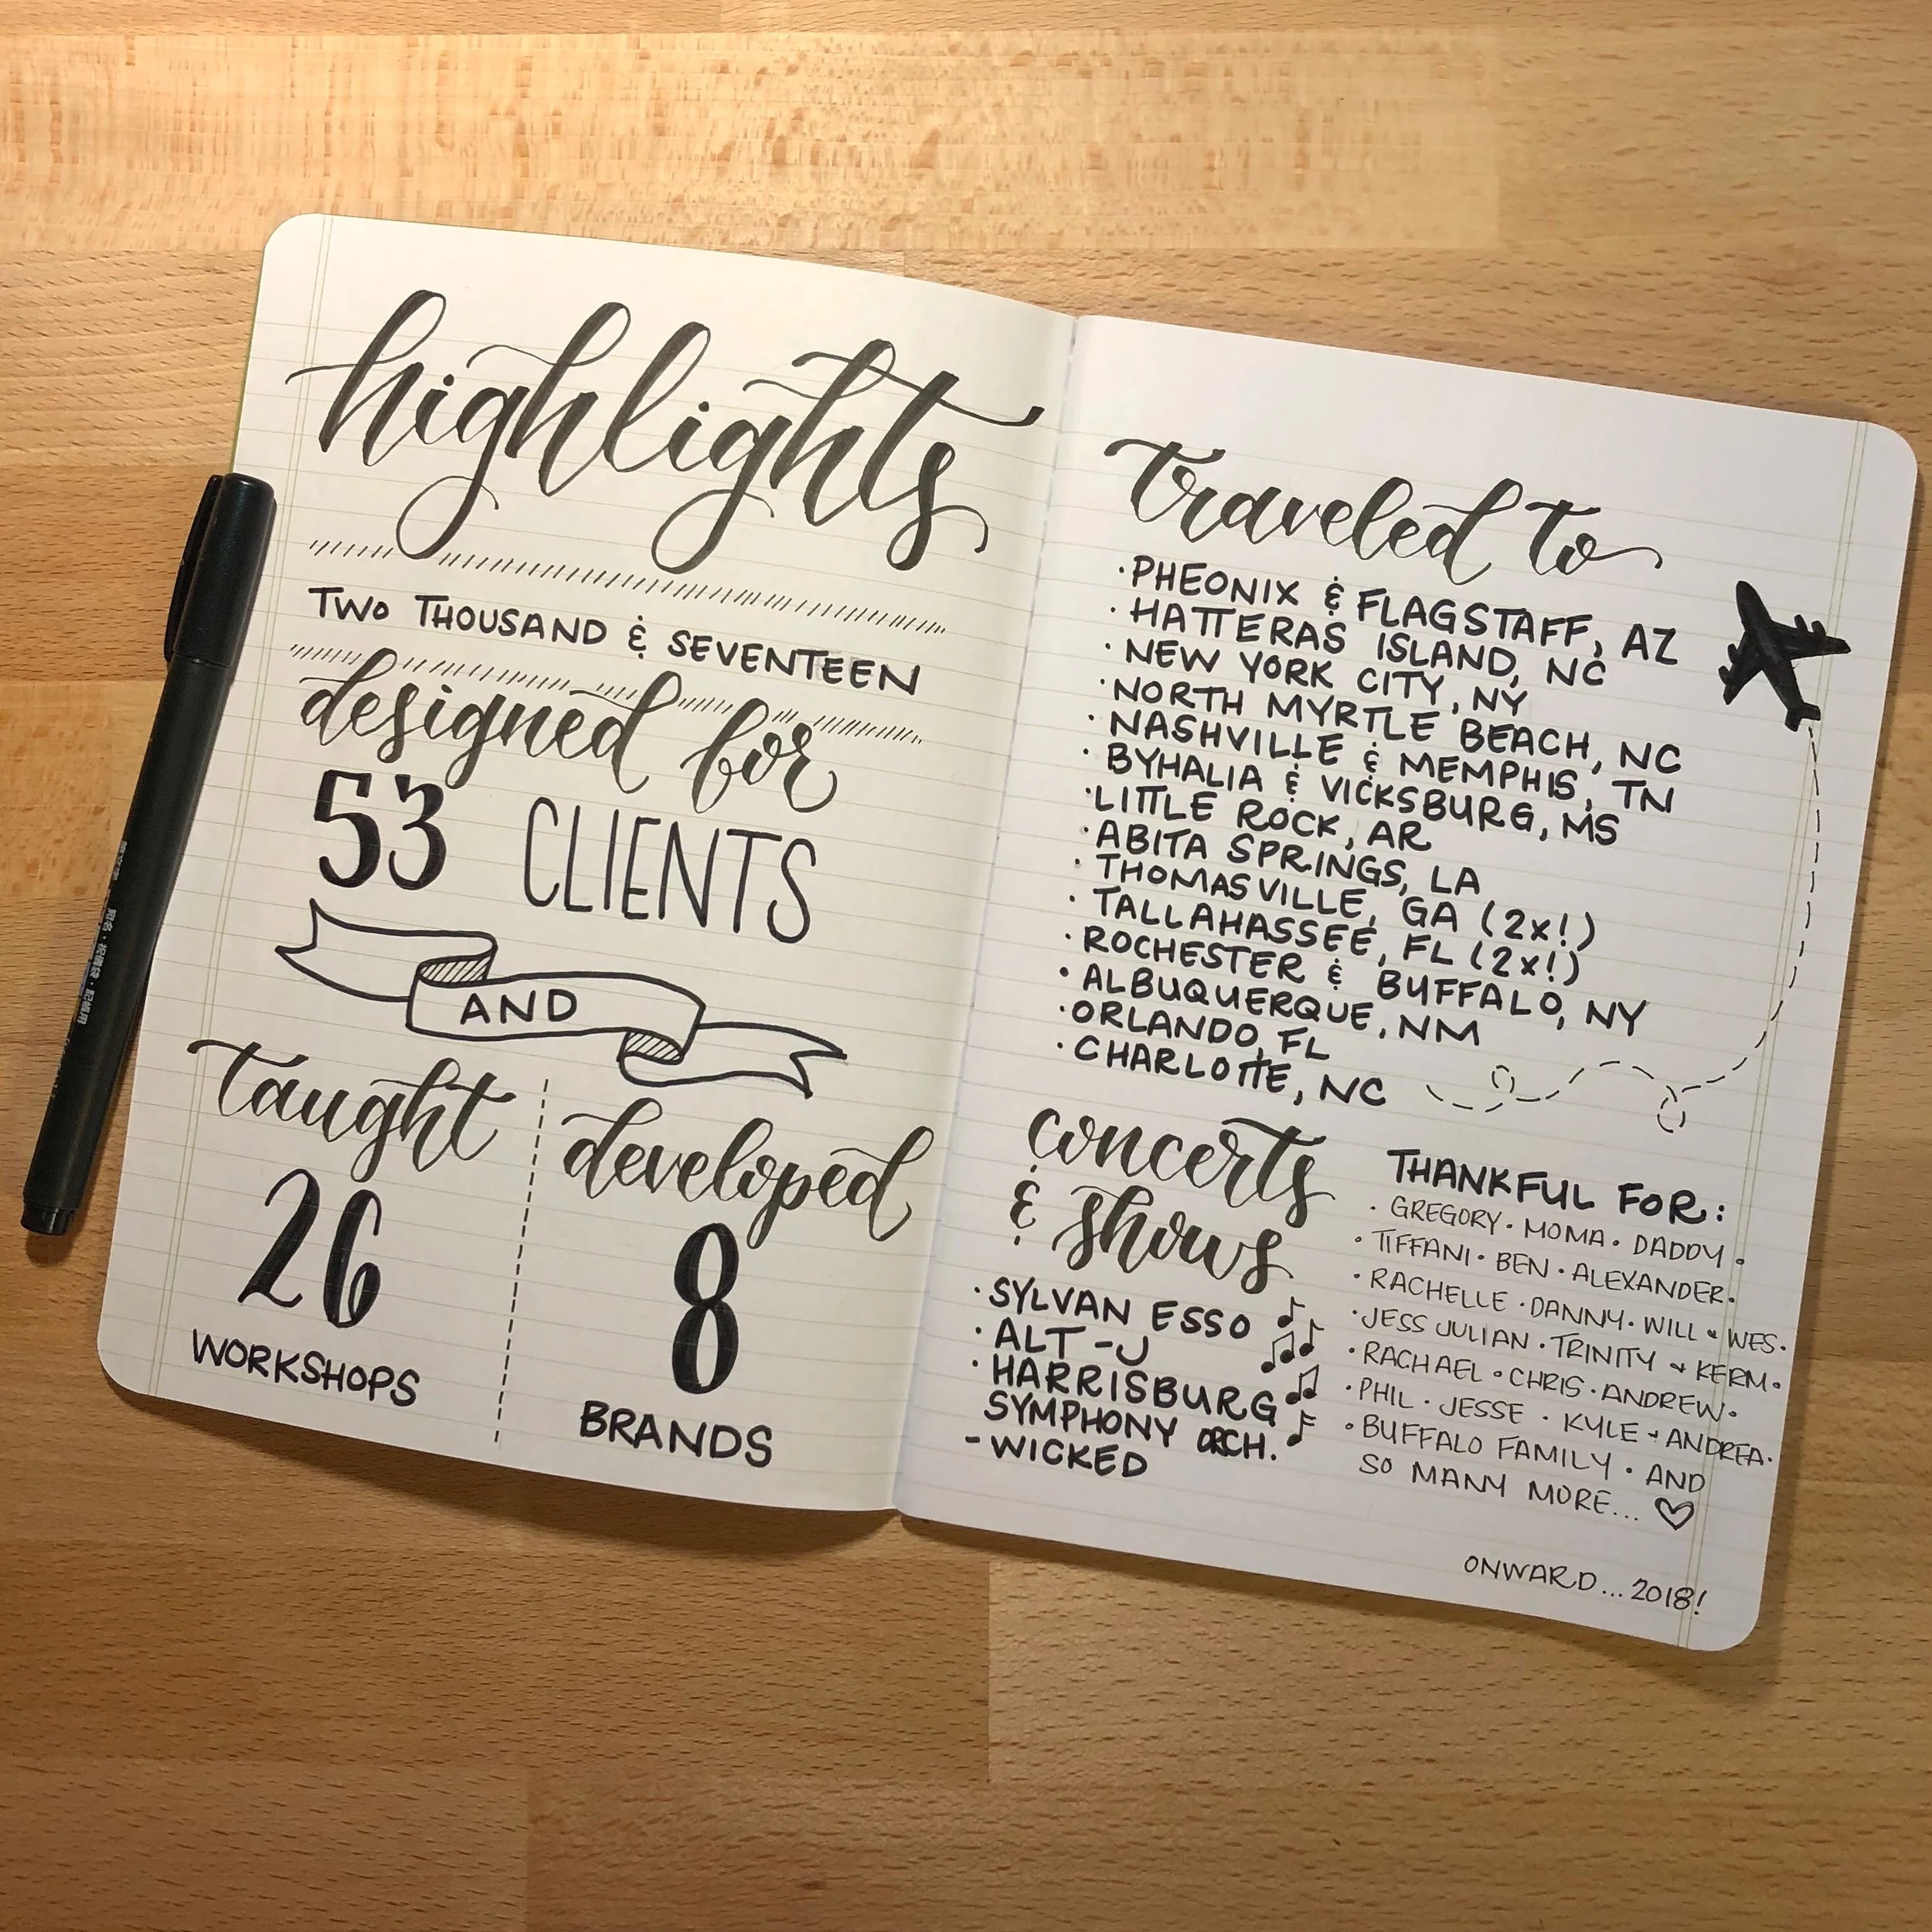 highlights
TWO THOUSAND & SEVENTEEN
designed for
53 CLIENTS
AND
taught
26
WORKSHOPS
developed
8
BRANDS
traveled to
· PHEONIX & FLAGSTAFF, AZ
· HATTERAS ISLAND, NC
· NEW YORK CITY, NY
· NORTH MYRTLE BEACH, NC
· NASHVILLE & MEMPHIS, TN
· BYHALIA & VICKSBURG, MS
· LITTLE ROCK, AR
· ABITA SPRINGS, LA
· THOMASVILLE, GA (2x!)
· TALLAHASSEE, FL (2x!)
· ROCHESTER & BUFFALO, NY
· ALBUQUERQUE, NM
· ORLANDO, FL
· CHARLOTTE, NC
concerts
& shows
· SYLVAN ESSO
· ALT-J
· HARRISBURG
SYMPHONY ORCH.
- WICKED
THANKFUL FOR:
· GREGORY · MOMA · DADDY ·
· TIFFANI · BEN · ALEXANDER ·
· RACHELLE · DANNY · WILL & WES ·
· JESS JULIAN · TRINITY & KERM ·
· RACHAEL · CHRIS · ANDREW ·
· PHIL · JESSE · KYLE + ANDREA ·
· BUFFALO FAMILY · AND
SO MANY MORE...
ONWARD...2018!